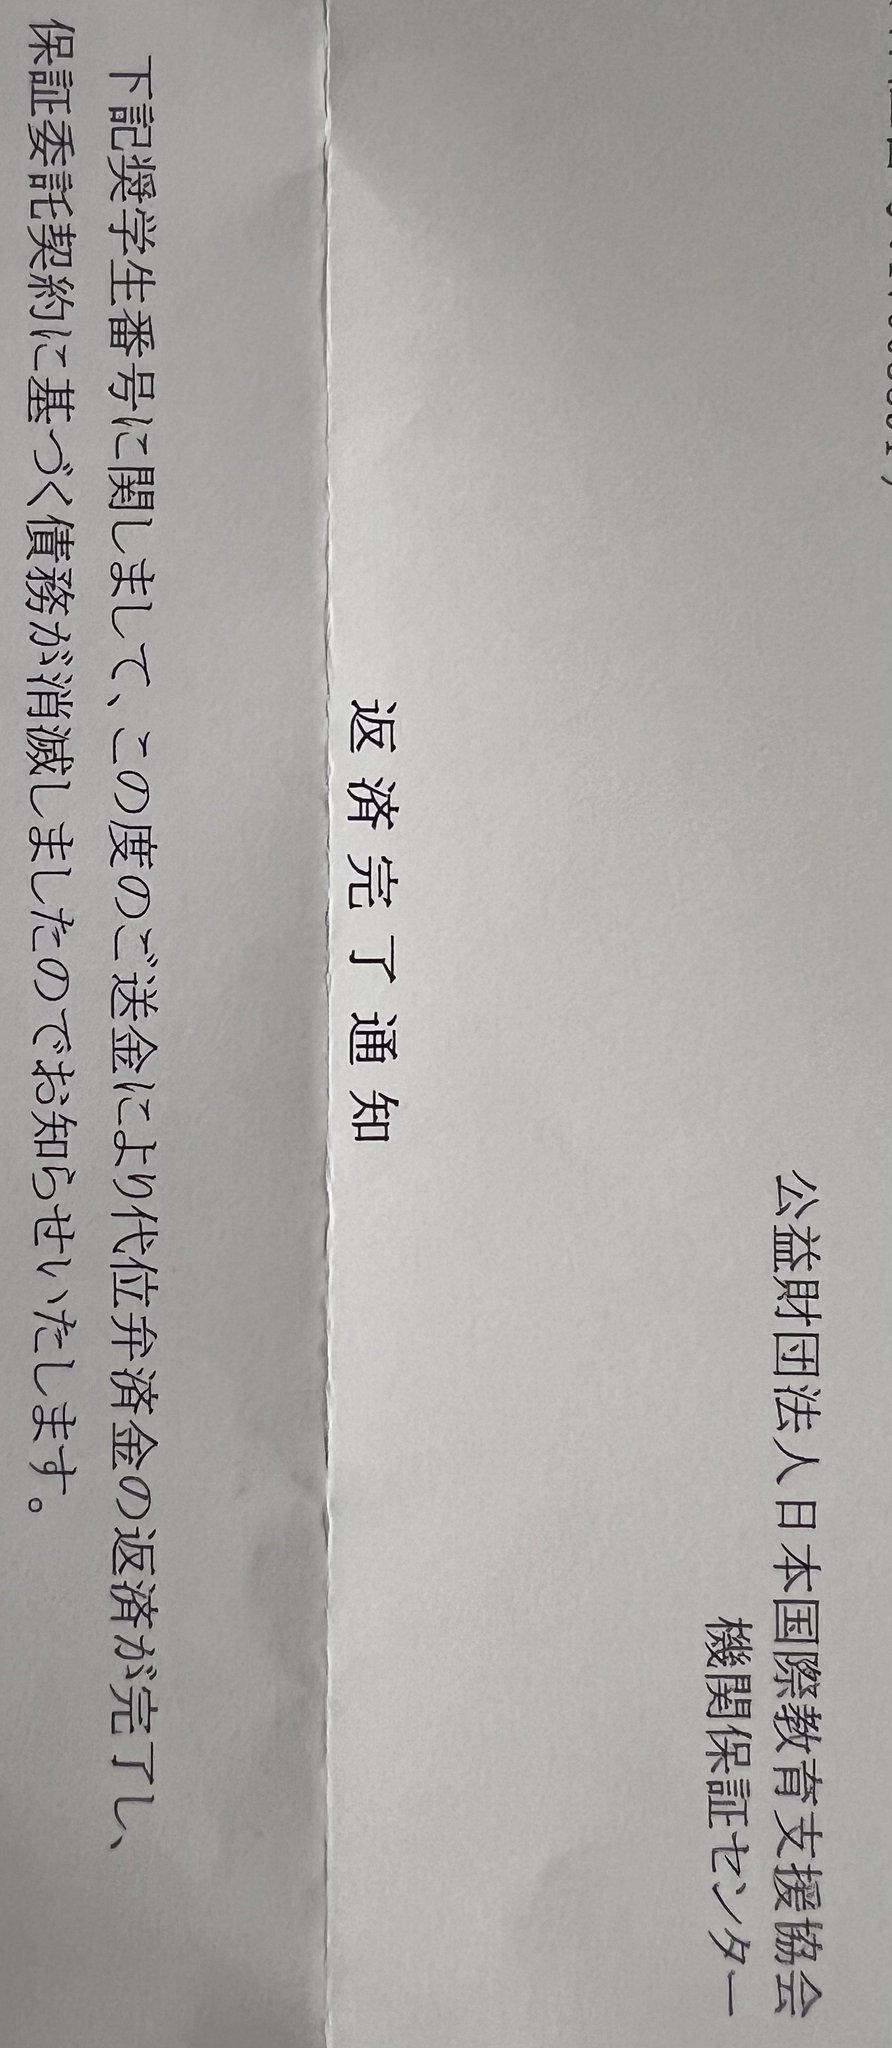 公益財団法人日本国際教育支援協会
機関保証センター
返済完了通知
下記奨学生番号に関しまして、この度のご送金により代位弁済金の返済が完了し、
保証委託契約に基づく債務が消滅しましたのでお知らせいたします。